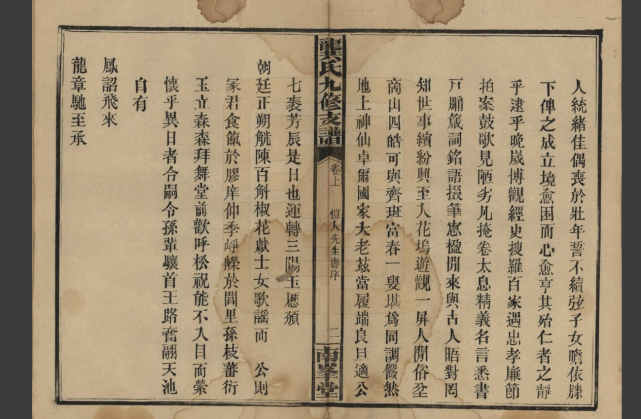 人統緒佳偶喪於壯年誓不續弦子女瞻依膝
下俾之成立境愈困而心愈亨其殆仁者之靜
乎逮乎晚歲博觀經史搜羅百家遇忠孝廉節
拍案鼓歌見陋劣凡掩卷太息精義名言悉書
戸牖箴詞銘語掇筆窻楹閒來與古人晤對罔
知世事繽紛興至入花塢遊觀一屏人閒俗坌
商山四皓可與齊班富春一叟堪爲同調儼然
地上神仙卓爾國家大老茲當履端良旦適公
龔氏九修支譜
卷上
愷人先生壽序
二
南峯堂
七袠芳辰是日也運轉三陽玉厯頒
朝廷正朔觥陳百斛椒花獻士女歌謠而 公則
冢君食餼於膠庠仲季崢嶸於閭里孫枝蕃衍
玉立森森拜舞堂前歡呼松祝能不入目而縈
懷乎異日者合嗣令孫輩驤首王路奮翮天池
自有
鳳詔飛來
龍章馳至承